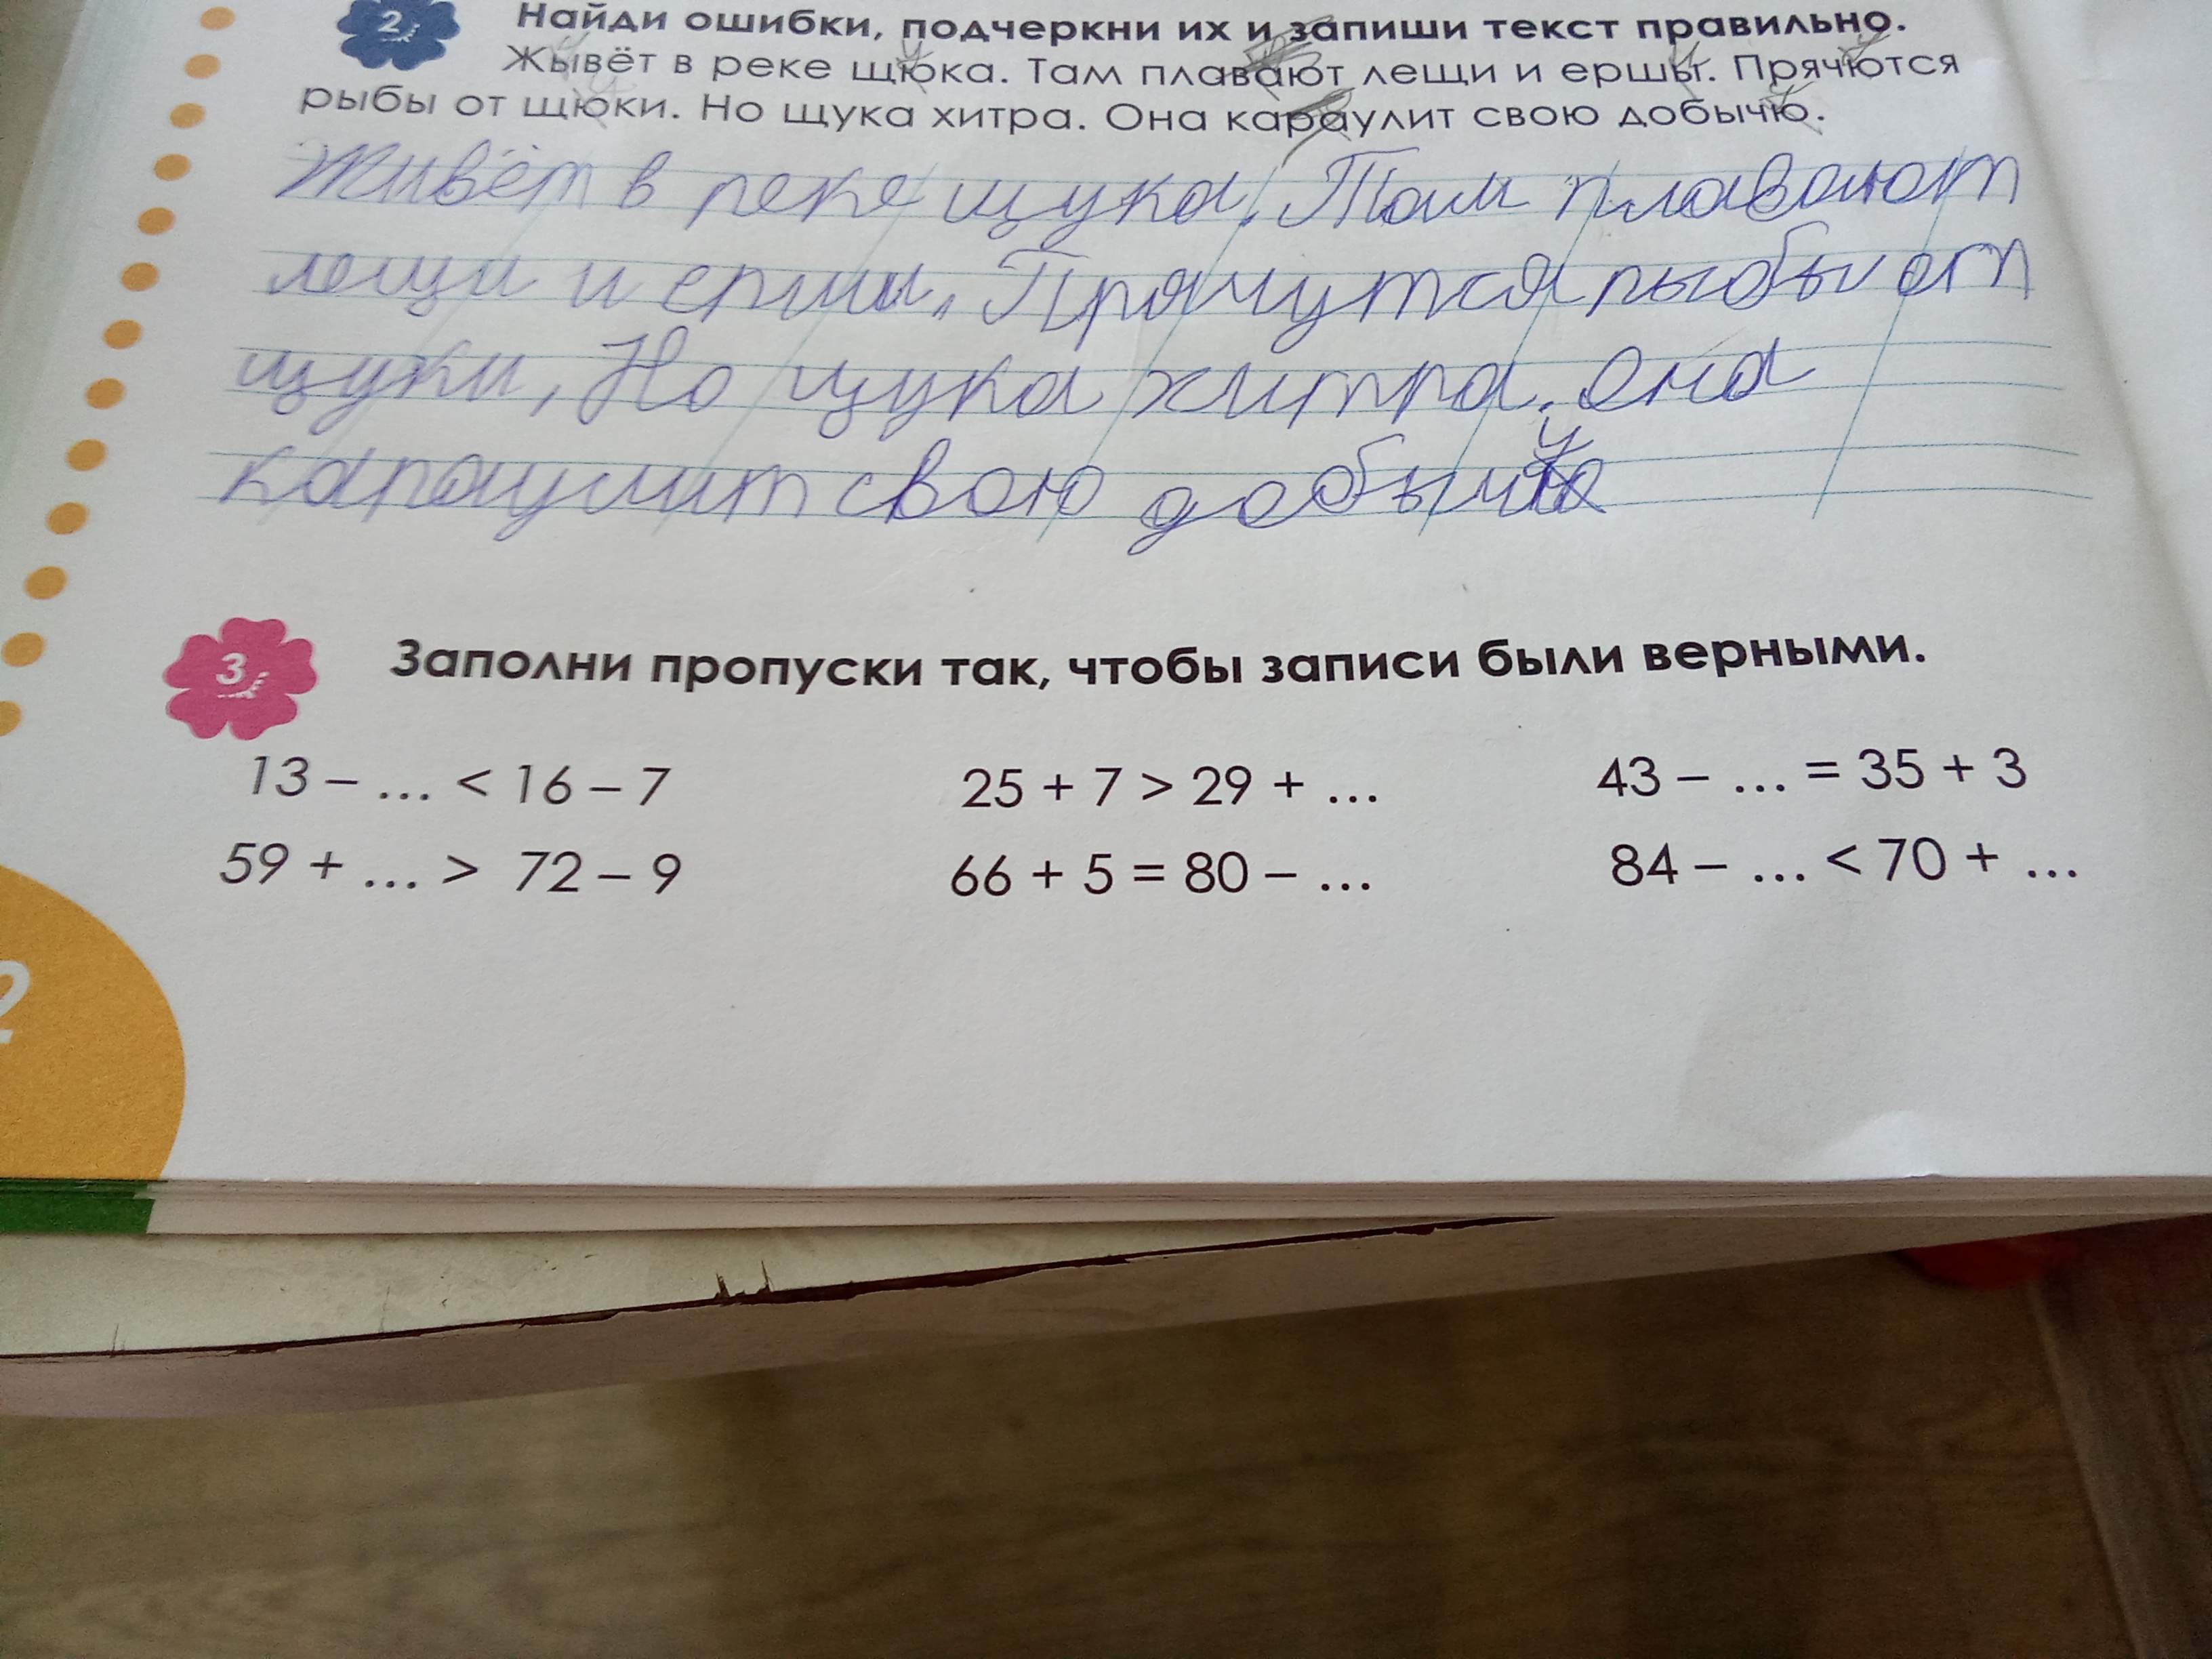 2
Найди ошибки, подчеркни их и запиши текст правильно.
Жывёт в реке щюка. Там плавают лещи и ершы. Прячются
рыбы от щюки. Но щука хитра. Она караулит свою добычю.
Живёт в реке щука. Там плавают
лещи и ерши. Прячутся рыбы от
щуки, Но щука хитра. Она
караулит свою добычу
3
Заполни пропуски так, чтобы записи были верными.
13 – ... < 16 – 7 25 + 7 > 29 + ... 43 – ... = 35 + 3
59 + ... > 72 – 9 66 + 5 = 80 – ... 84 – ... < 70 + ...
2